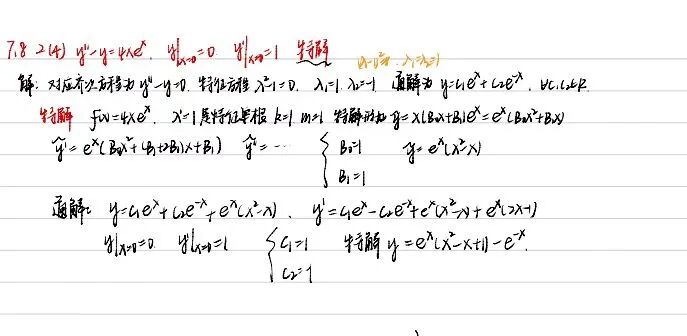 7.8 2(4) y''-y=4xeˣ, y|ₓ₌₀=0. y'|ₓ₌₀=1 特解
λ₁=λ₂=1
解: 对应齐次方程为 y''-y=0. 特征方程 λ²-1=0. λ₁=1. λ₂=-1 通解为 y=C₁eˣ+C₂e⁻ˣ, ∀C₁,C₂∈R.
特解 f(x)=4xeˣ. λ=1是特征单根 k=1 m=1 特解形为 ỹ=x(B₀x+B₁)eˣ=eˣ(B₀x²+B₁x)
ỹ'=eˣ(B₀x²+(B₁+2B₀)x+B₁) ỹ''=⋯ { B₀=1 ỹ=eˣ(x²-x)
B₁=1
通解: y=C₁eˣ+C₂e⁻ˣ+eˣ(x²-x). y'=C₁eˣ-C₂e⁻ˣ+eˣ(x²-x)+eˣ(2x-1)
y|ₓ₌₀=0 y'|ₓ₌₀=1 { C₁=1 特解 y=eˣ(x²-x+1)-e⁻ˣ.
C₂=-1